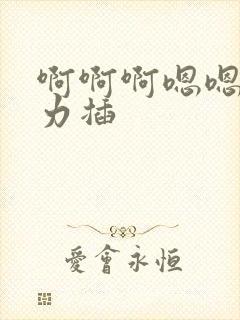 啊啊啊嗯嗯
力插
愛會永恒